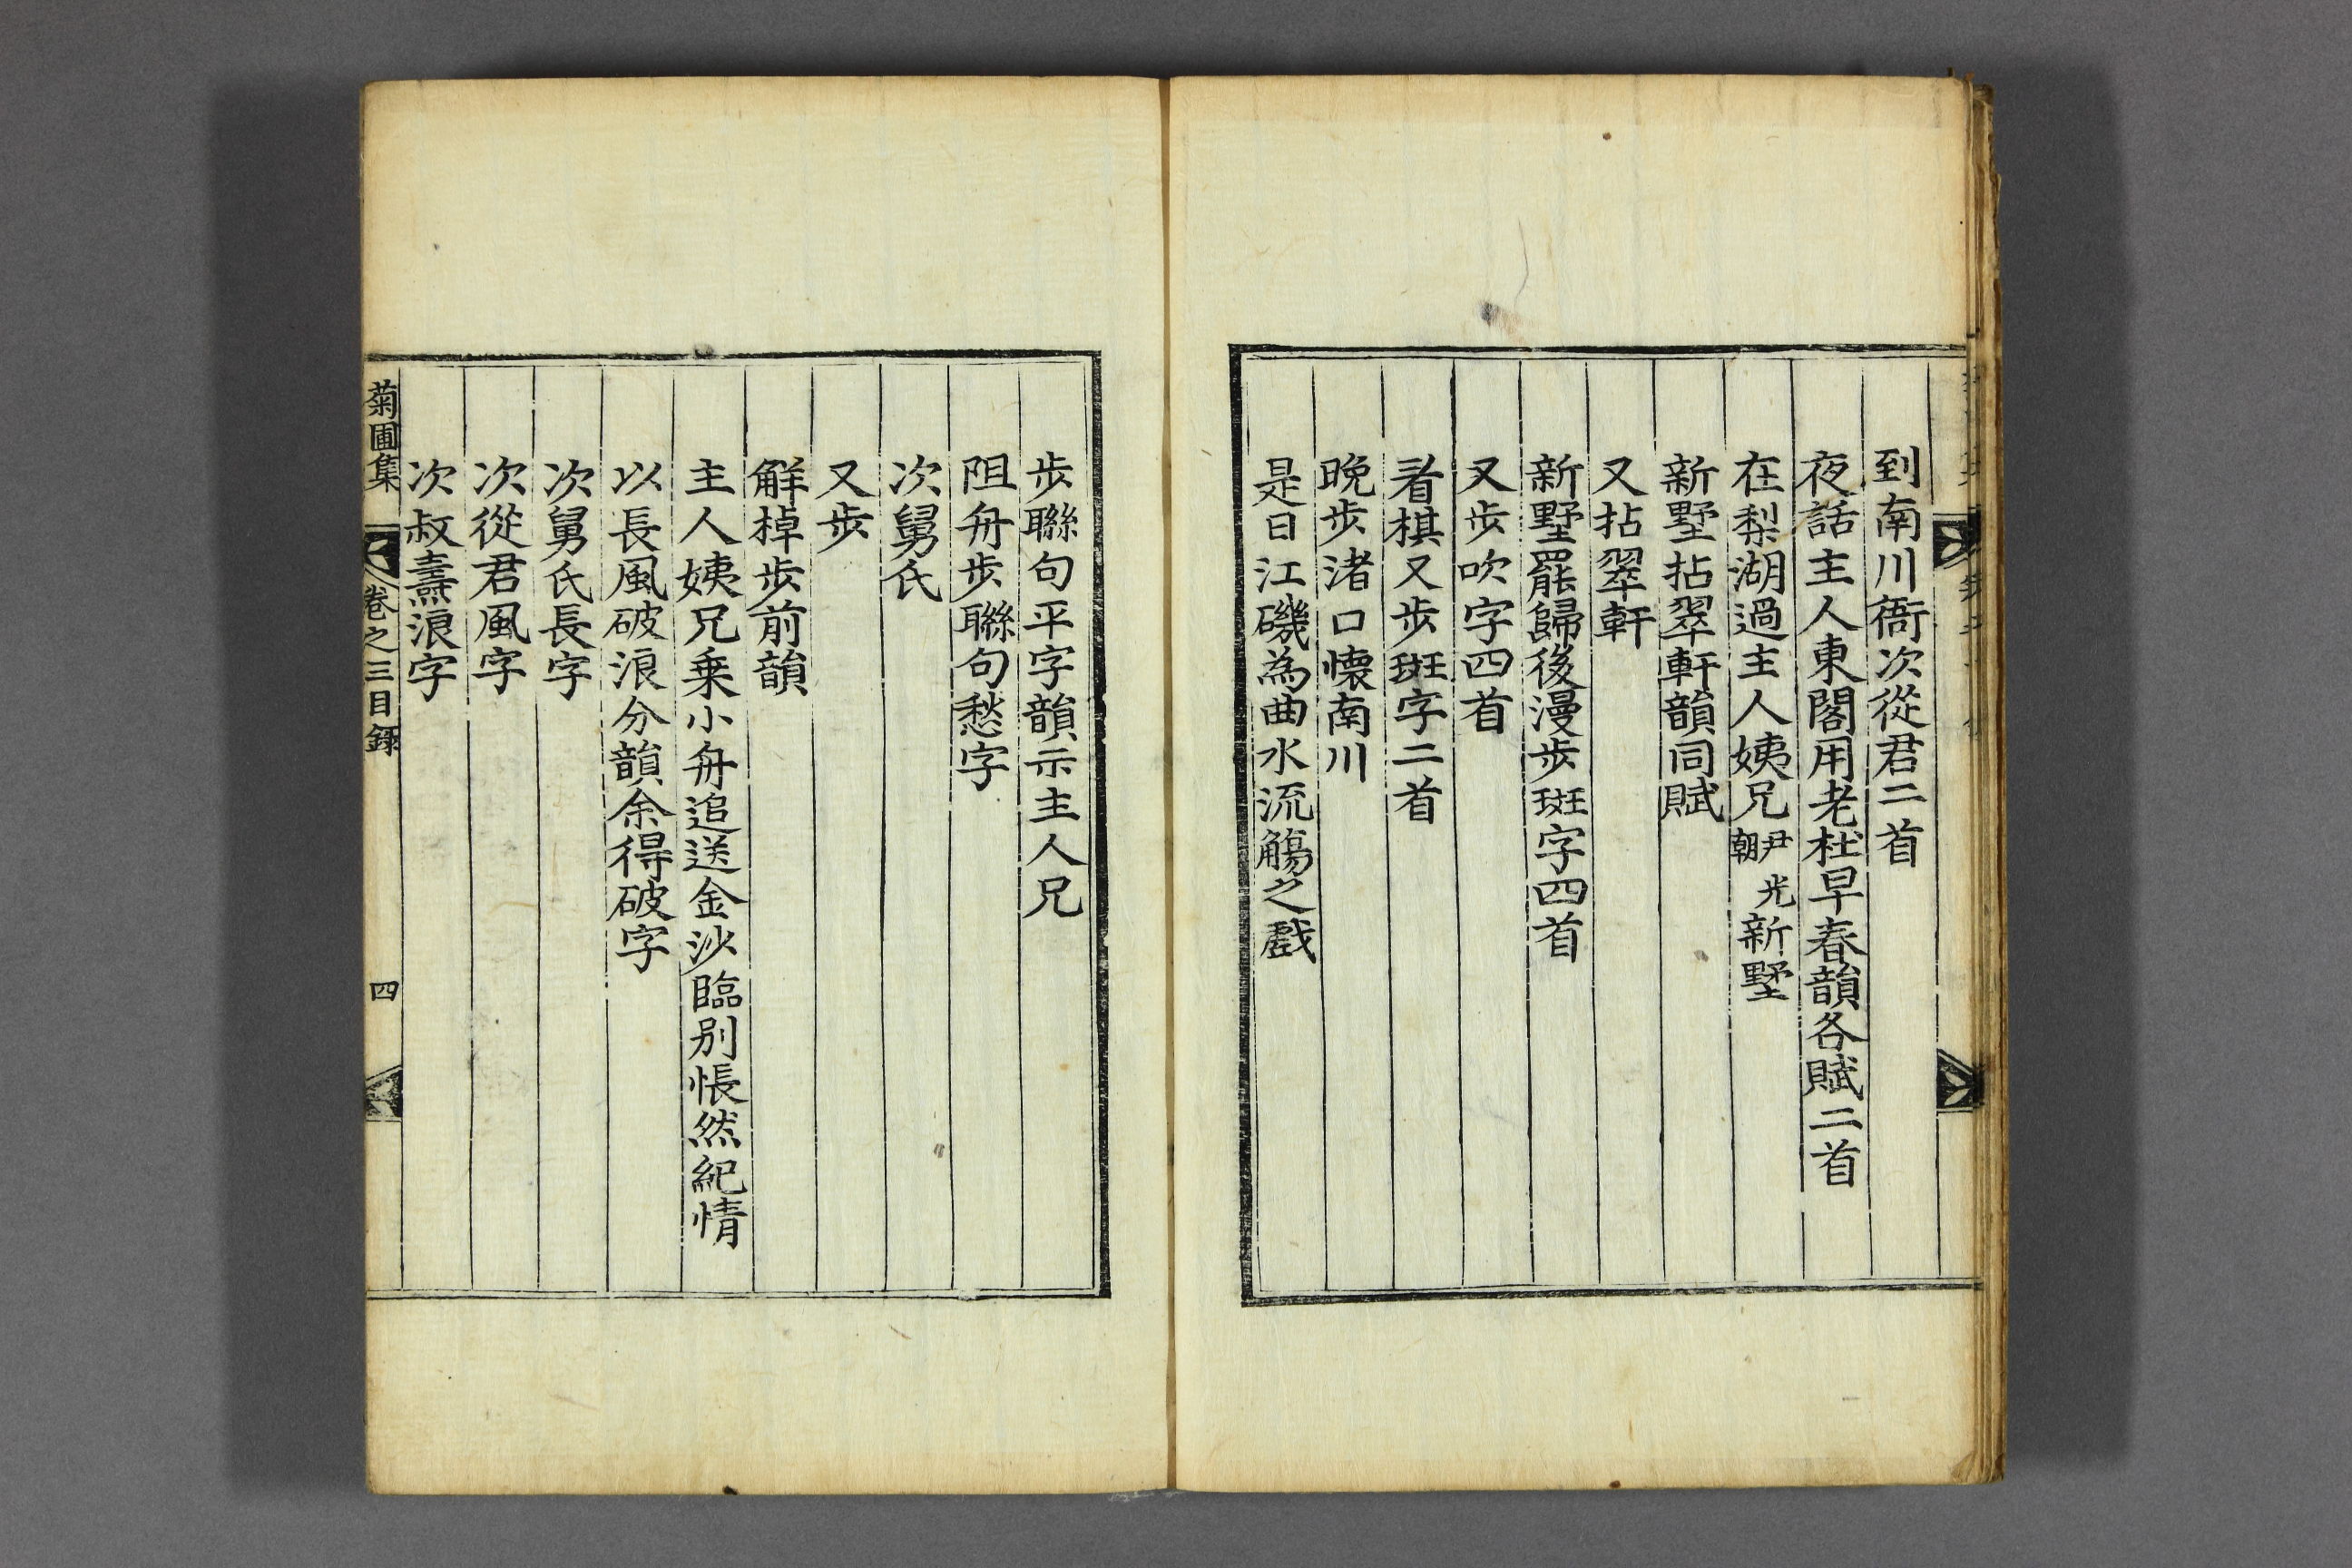 到南川衙次從君二首
夜話主人東閣用老杜早春韻各賦二首
在梨湖過主人姨兄尹朝光新墅
新墅拈翠軒韻同賦
又拈翠軒
新墅罷歸後漫步斑字四首
又步吹字四首
看棋又步斑字二首
晚步渚口懷南川
是日江磯為曲水流觴之戲
步聯句平字韻示主人兄
阻舟步聯句愁字
次舅氏
又步
解棹步前韻
主人姨兄乗小舟追送金沙臨別悵然紀情
以長風破浪分韻余得破字
次舅氏長字
次從君風字
次叔燾浪字
菊圃集 卷之三目錄 四